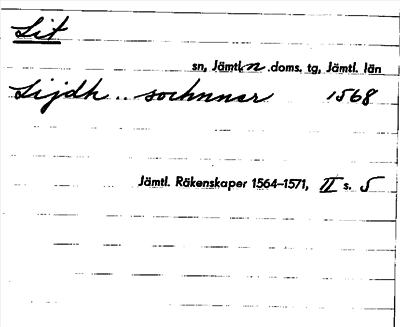 Lit
sn, Jämtl. n .doms. tg, Jämtl. län
Lijdh .. sochnner 1568
Jämtl. Räkenskaper 1564–1571, II s. 5